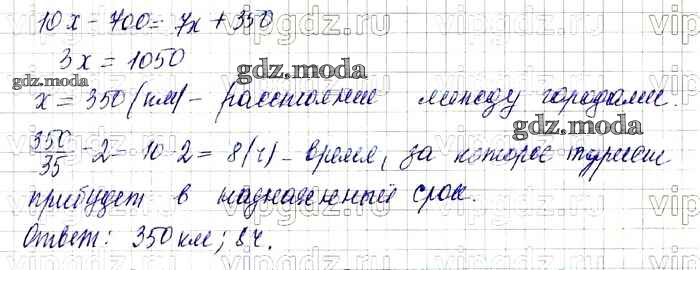 10x - 700 = 7x + 350
3x = 1050
x = 350 (км) - расстояние между городами.
350/35 - 2 = 10 - 2 = 8 (ч) - время, за которое турист
прибудет в назначенный срок.
Ответ: 350 км; 8 ч.
gdz.moda
gdz.moda
gdz.moda
vipgdz.ru